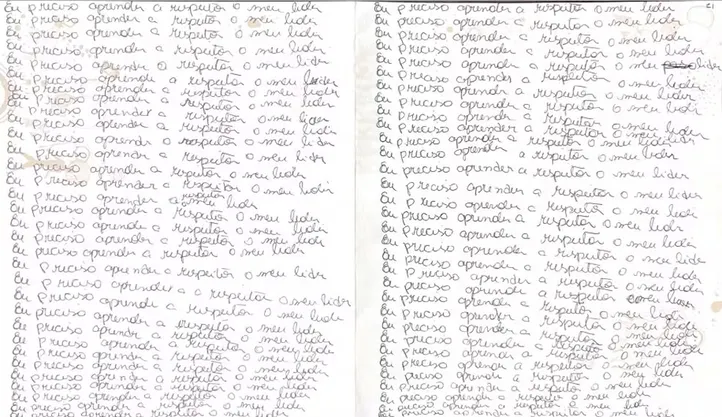 Eu preciso aprender a respeitar o meu lider
Eu preciso aprender a respeitar o meu lider
Eu preciso aprender a respeitar o meu lider
Eu preciso aprender a respeitar o meu lider
Eu preciso aprender a respeitar o meu lider
Eu preciso aprender a respeitar o meu lider
Eu preciso aprender a respeitar o meu lider
Eu preciso aprender a respeitar o meu lider
Eu preciso aprender a respeitar o meu lider
Eu preciso aprender a respeitar o meu lider
Eu preciso aprender a respeitar o meu lider
Eu preciso aprender a respeitar o meu lider
Eu preciso aprender a respeitar o meu lider
Eu preciso aprender a respeitar o meu lider
Eu preciso aprender a respeitar o meu lider
Eu preciso aprender a respeitar o meu lider
Eu preciso aprender a respeitar o meu lider
Eu preciso aprender a respeitar o meu lider
Eu preciso aprender a respeitar o meu lider
Eu preciso aprender a respeitar o meu lider
Eu preciso aprender a a respeitar o meu lider
Eu preciso aprender a respeitar o meu lider
Eu preciso aprender a respeitar o meu lider
Eu preciso aprender a respeitar o meu lider
Eu preciso aprender a respeitar o meu lider
Eu preciso aprender a respeitar o meu lider
Eu preciso aprender a respeitar o meu lider
Eu preciso aprender a respeitar o meu lider
Eu preciso aprender a respeitar o meu lider
21
Eu preciso aprender a respeitar o meu lider
Eu preciso aprender a respeitar o meu lider
Eu preciso aprender a respeitar o meu lider
Eu preciso aprender a respeitar o meu lider
Eu preciso aprender a respeitar o meu lider
Eu preciso aprender a respeitar o meu lider
Eu preciso aprender a respeitar o meu lider
Eu preciso aprender a respeitar o meu lider
Eu preciso aprender a respeitar o meu lider
Eu preciso aprender a respeitar o meu lider
Eu preciso aprender a respeitar o meu lider
Eu preciso aprender a respeitar o meu lider
Eu preciso aprender a respeitar o meu lider
Eu preciso aprender a respeitar o meu lider
Eu preciso aprender a respeitar o meu lider
Eu preciso aprender a respeitar o meu lider
Eu preciso aprender a respeitar o meu lider
Eu preciso aprender a respeitar o meu lider
Eu preciso aprender a respeitar o meu lider
Eu preciso aprender a respeitar o meu lider
Eu preciso aprender a respeitar o meu lider
Eu preciso aprender a respeitar o meu lider
Eu preciso aprender a respeitar o meu lider
Eu preciso aprender a respeitar o meu lider
Eu preciso aprender a respeitar o meu lider
Eu preciso aprender a respeitar o meu lider
Eu preciso aprender a respeitar o meu lider
Eu preciso aprender a respeitar o meu lider